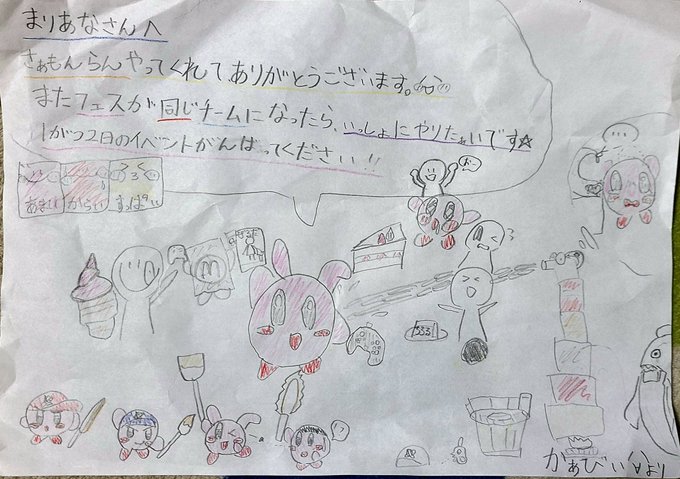 まりあなさんへ
さぁもんらんやってくれて、ありがとうございます。
またフェスが同じチームになったら、いっしょにやりたぁいです☆
11がつ22日のイベントがんばってください!!
あまい
からい
すっぱい
かぁびぃより